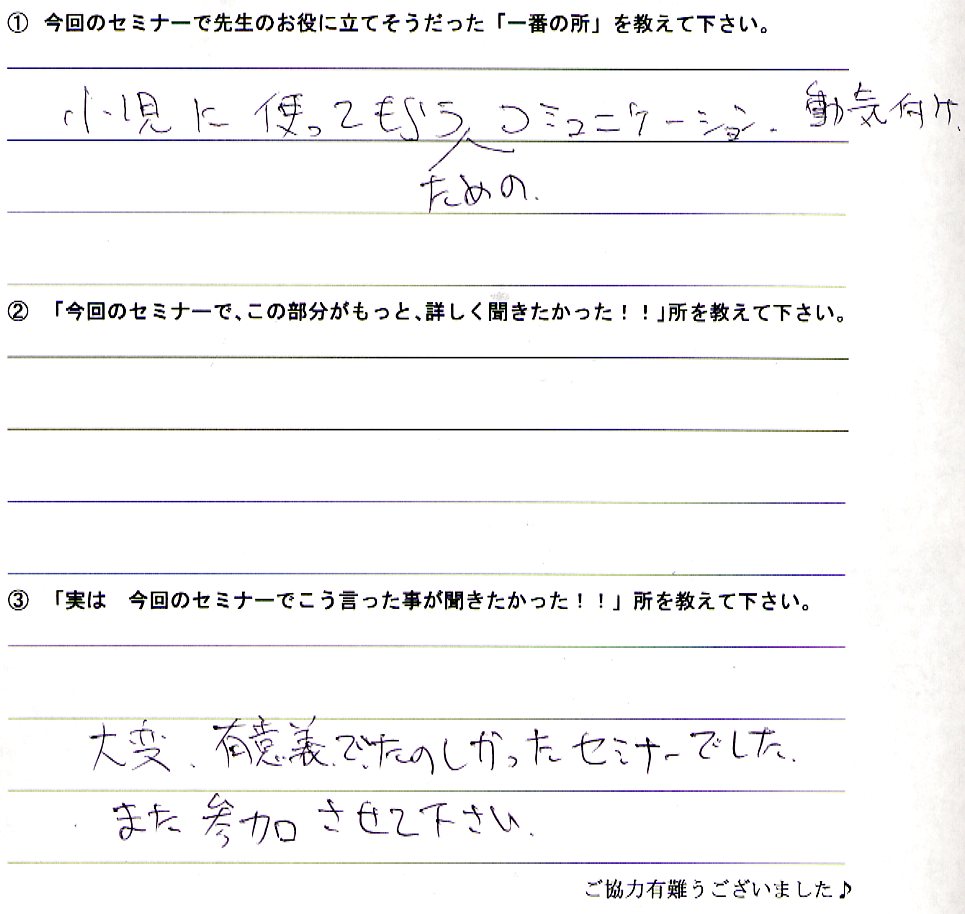 ① 今回のセミナーで先生のお役に立てそうだった「一番の所」を教えて下さい。
小児に使ってもらう コミュニケーション. 動気付け.
ための.
② 「今回のセミナーで、この部分がもっと、詳しく聞きたかった！！」所を教えて下さい。
③ 「実は 今回のセミナーでこう言った事が聞きたかった！！」所を教えて下さい。
大変、有意義で、たのしかったセミナーでした.
また参加させて下さい.
ご協力有難うございました♪